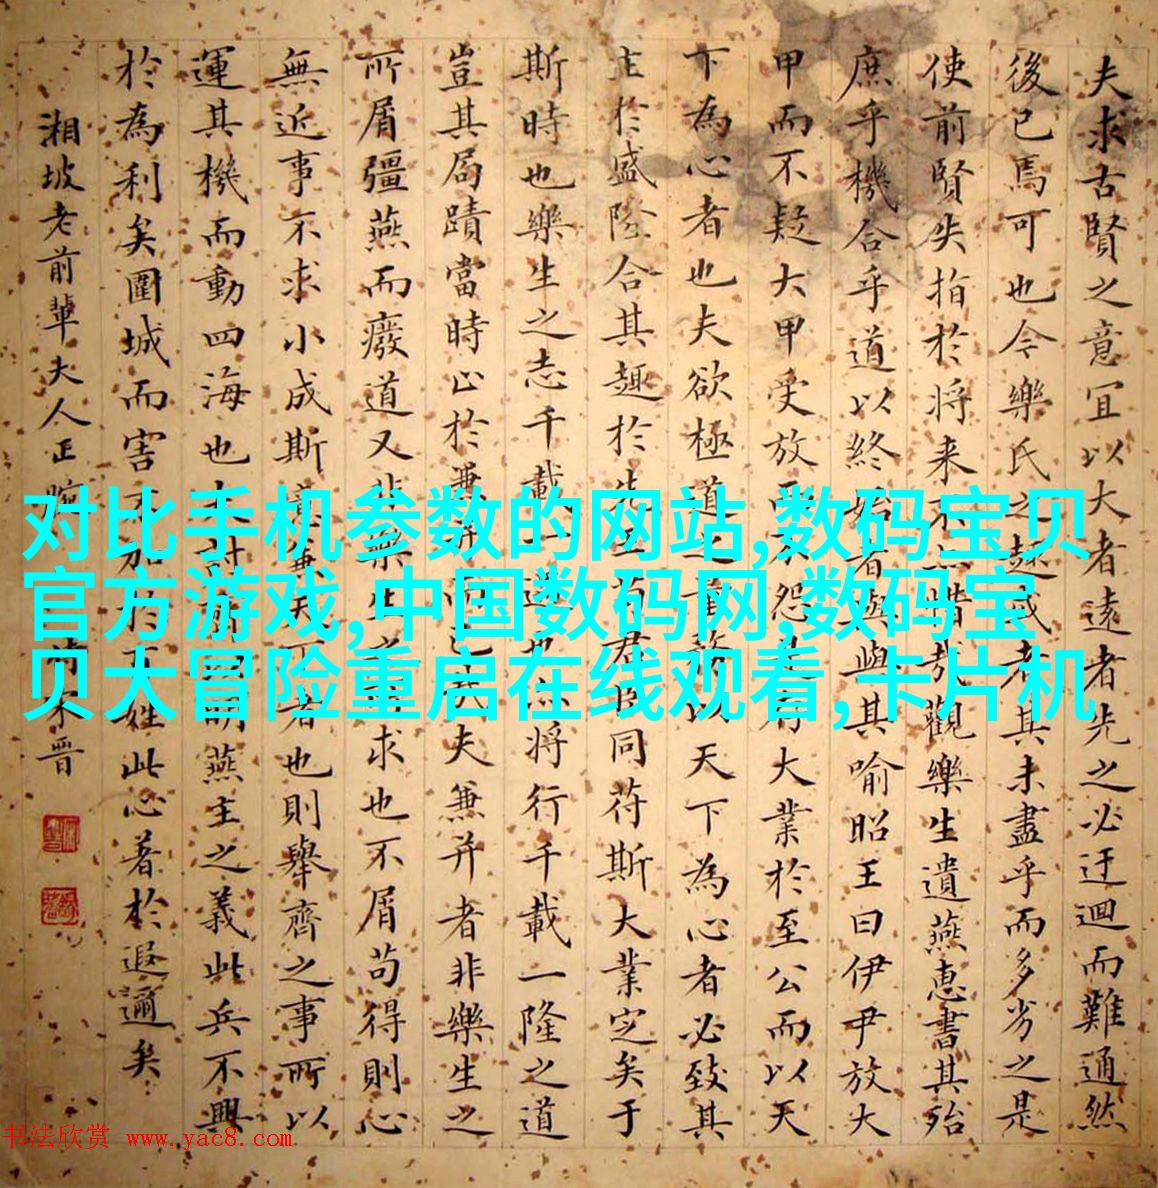 夫求古賢之意宜以大者遠者先之必迂迴而難通然
後已焉可也今樂氏之趣或者其未盡乎而多劣之是
使前賢失指於将来不亦惜哉觀樂生遺燕惠書其殆
庶乎機合乎道以終始者與與其喻昭王曰伊尹放大
甲而不疑大甲受放而不怨是存大業於至公而以天
下為心者也夫欲極道之量務以天下為心者必致其
主於盛隆合其趣於先王苟君臣同苻斯大業定矣于
斯時也樂生之志千載一遇也亦将行千載一隆之道
豈其局蹟當時止於兼并而已哉夫兼并者非樂生之
所屑彊燕而廢道又非樂生之所求也不屑苟得則心
無近事不求小成斯意兼天下者也則舉齊之事所以
運其機而動四海也夫討齊以明燕主之義此兵不興
於為利矣圍城而害不加於百姓此心著於遐邇矣
湘坡老前輩夫人正腕
对比手机参数的网站,数码宝贝
官方游戏,中国数码网,数码宝
贝大冒险重启在线观看,卡片机
书法欣赏 www.yac8.com